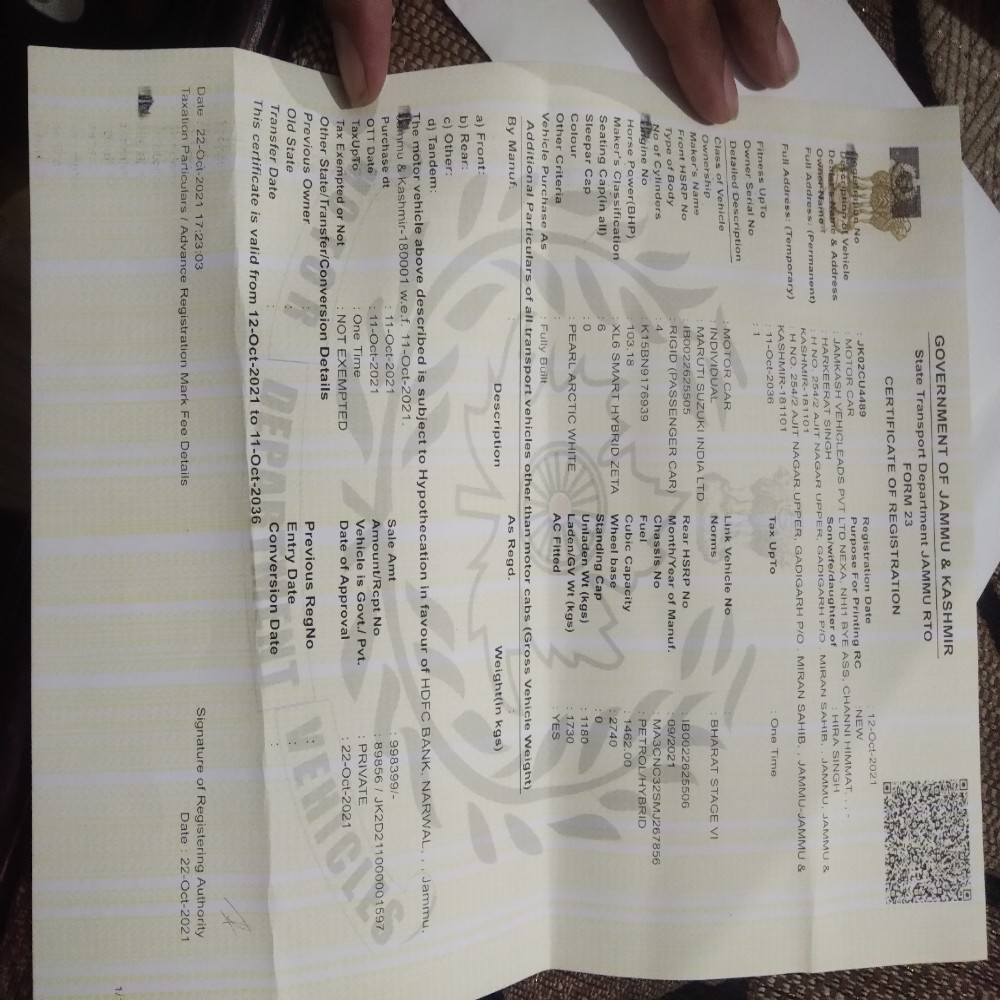 GOVERNMENT OF JAMMU & KASHMIR
State Transport Department JAMMU RTO
FORM 23
CERTIFICATE OF REGISTRATION
Registration No : JK02CU4489 Registration Date : 12-Oct-2021
Description of Vehicle : MOTOR CAR Purpose For Printing RC : NEW
Dealer Name & Address : JAMKASH VEHICLEADS PVT LTD NEXA, NH11 BYE ASS, CHANNI HIMMAT, , , -
Owner Name : HARKPERAT SINGH Son/wife/daughter of : HIRA SINGH
Full Address: (Permanent) : H NO. 254/2 AJIT NAGAR UPPER, GADIGARH P/O . MIRAN SAHIB, , JAMMU, JAMMU &
KASHMIR-181101
Full Address: (Temporary) : H NO. 254/2 AJIT NAGAR UPPER, GADIGARH P/O . MIRAN SAHIB, , JAMMU-JAMMU &
KASHMIR-181101
Fitness UpTo : 11-Oct-2036 Tax UpTo : One Time
Owner Serial No : 1
Detailed Description
Class of Vehicle : MOTOR CAR Link Vehicle No
Ownership : INDIVIDUAL Norms : BHARAT STAGE VI
Maker's Name : MARUTI SUZUKI INDIA LTD
Front HSRP No : IB0022625505 Rear HSRP No : IB0022625506
Type of Body : RIGID (PASSENGER CAR) Month/Year of Manuf. : 09/2021
No of Cylinders : 4 Chassis No : MA3CNC32SMJ267856
Engine No : K15BN9176939 Fuel : PETROL/HYBRID
Horse Power(BHP) : 103.18 Cubic Capacity : 1462.00
Maker's Classification : XL6 SMART HYBRID ZETA Wheel base : 2740
Seating Cap(in all) : 6 Standing Cap : 0
Sleepar Cap : 0 Unladen Wt (kgs) : 1180
Colour : PEARL ARCTIC WHITE Laden/GV Wt (kgs) : 1730
Other Criteria : AC Fitted : YES
Vehicle Purchase As : Fully Built
Additional Particulars of all transport vehicles other than motor cabs (Gross Vehicle Weight)
By Manuf. : As Regd.
Description Weight(in kgs)
a) Front:
b) Rear:
c) Other:
d) Tandem:
The motor vehicle above described is subject to Hypothecation in favour of HDFC BANK, NARWAL, , , Jammu,
Jammu & Kashmir-180001 w.e.f. 11-Oct-2021.
Purchase dt : 11-Oct-2021 Sale Amt : 998399/-
OTT Date : 11-Oct-2021 Amount/Rcpt No : 89856 / JK2D211000001597
TaxUpTo : One Time Vehicle is Govt./ Pvt. : PRIVATE
Tax Exempted or Not : NOT EXEMPTED Date of Approval : 22-Oct-2021
Other State/Transfer/Conversion Details
Previous Owner : Previous RegNo :
Old State : Entry Date :
Transfer Date : Conversion Date :
This certificate is valid from 12-Oct-2021 to 11-Oct-2036
Signature of Registering Authority
Date : 22-Oct-2021 17:23:03 Date : 22-Oct-2021
Taxation Particulars / Advance Registration Mark Fee Details
DEPARTMENT
VEHICLES